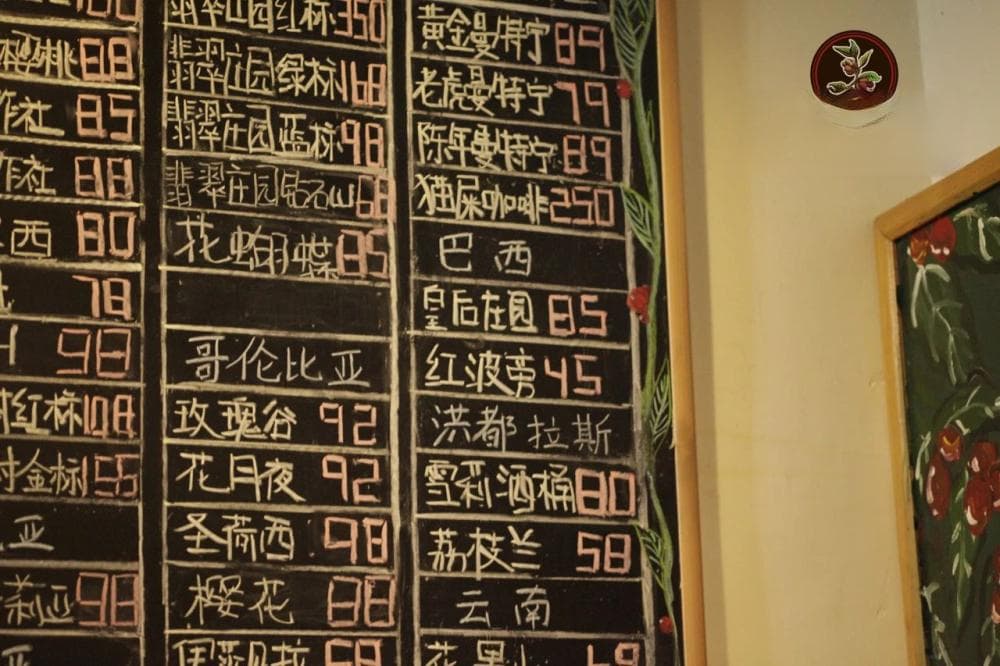 樱桃 88
作社 85
作社 88
西 80
78
98
村红标 108
村金标 56
亚
茉莉亚 98
亚
翡翠庄园红标 350
翡翠庄园绿标 168
翡翠庄园蓝标 98
翡翠庄园钻石山 68
花蝴蝶 85
哥伦比亚
玫瑰谷 92
花月夜 92
圣荷西 98
樱花 88
68
黄金曼特宁 89
老虎曼特宁 79
陈年曼特宁 89
猫屎咖啡 250
巴西
皇后庄园 85
红波旁 45
洪都拉斯
雪莉酒桶 80
荔枝兰 58
云南
花果山 69